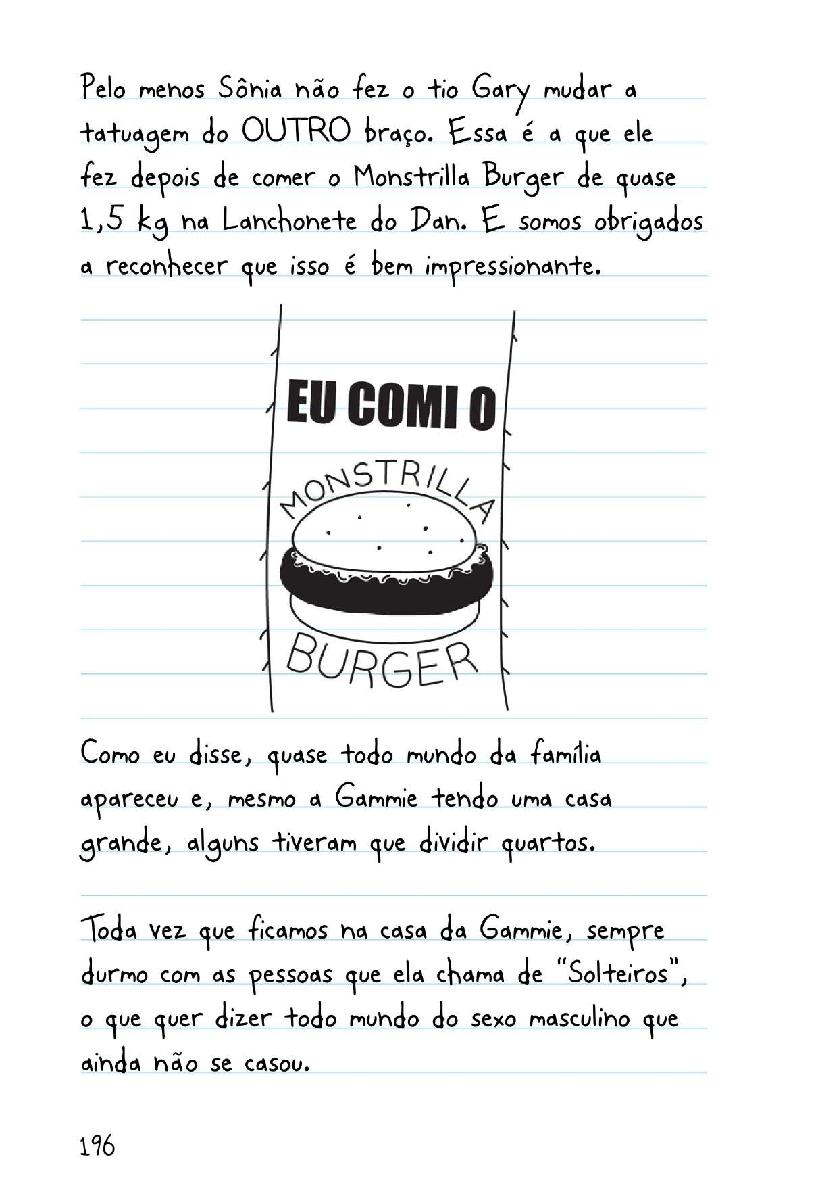 Pelo menos Sônia não fez o tio Gary mudar a
tatuagem do OUTRO braço. Essa é a que ele
fez depois de comer o Monstrilla Burger de quase
1,5 kg na Lanchonete do Dan. E somos obrigados
a reconhecer que isso é bem impressionante.
EU COMI O
MONSTRILLA
BURGER
Como eu disse, quase todo mundo da família
apareceu e, mesmo a Gammie tendo uma casa
grande, alguns tiveram que dividir quartos.
Toda vez que ficamos na casa da Gammie, sempre
durmo com as pessoas que ela chama de "Solteiros",
o que quer dizer todo mundo do sexo masculino que
ainda não se casou.
196